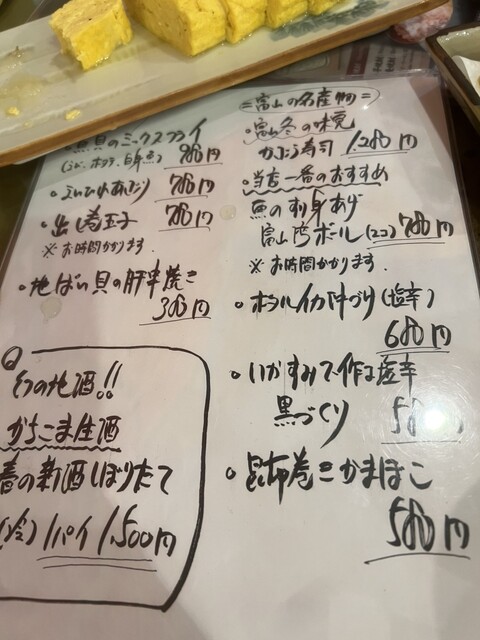 魚貝のミックスフライ
(えび、ホタテ、白身魚) 980円
・えいひれあぶり 780円
・出し巻玉子 780円
※お時間かかります
・地ばい貝の肝串焼き
380円
幻の地酒!!
かちこま生酒
春の新酒しぼりたて
(冷) 1パイ 1,500円
=富山の名産物=
・富山冬の味覚
かぶら寿司 1,280円
・当店一番のおすすめ
魚のすり身あげ
富山湾ボール(2コ) 780円
※お時間かかります.
・ホタルイカ沖づけ(塩辛)
680円
・いかすみで作る塩辛
黒づくり 580円
・昆布巻きかまぼこ
580円